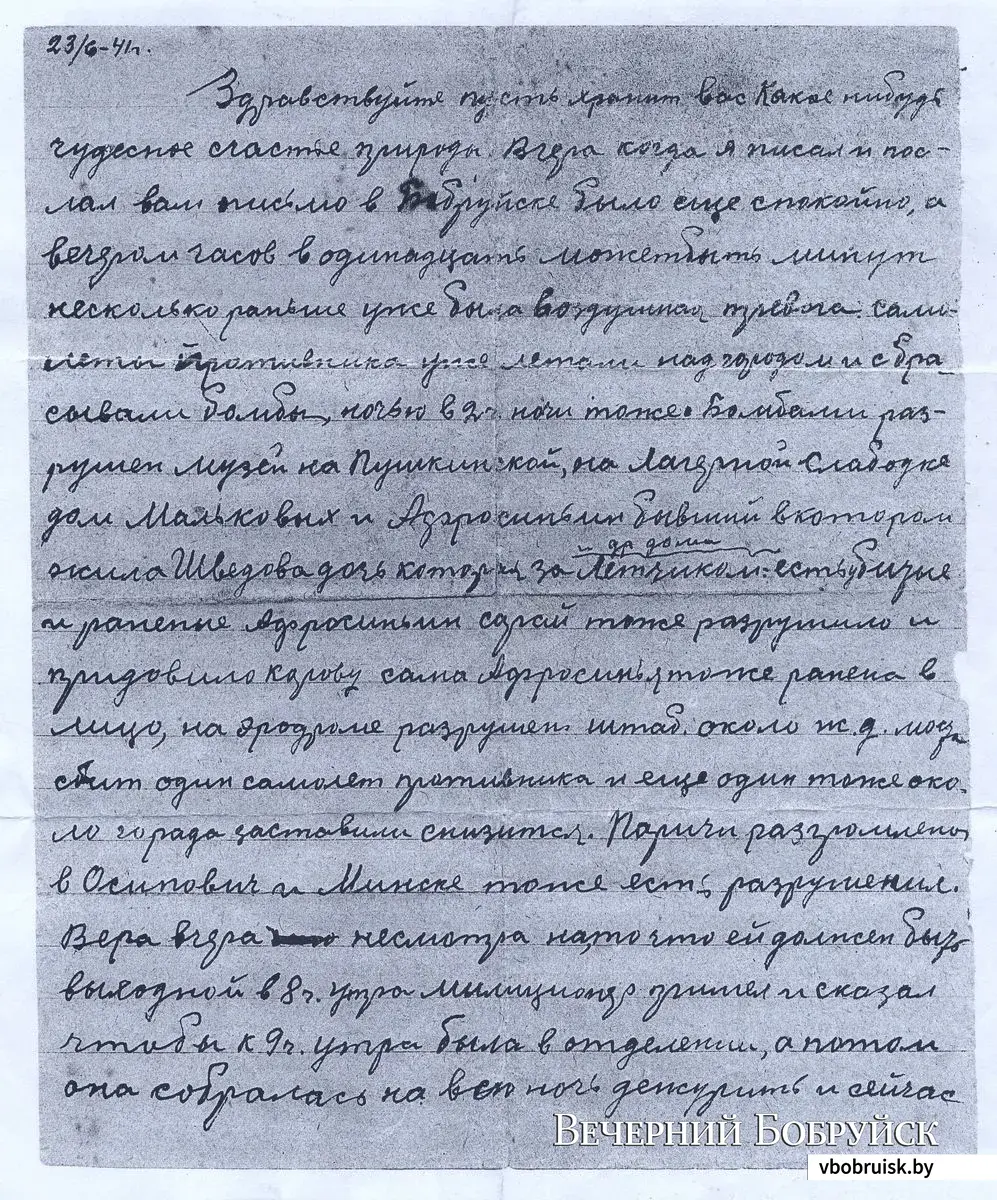 23/6-41г.
Здравствуйте пусть хранит вас Какое нибудь
чудесное счастье природы. Вчера когда я писал и пос-
лал вам письмо в Бобруйске было еще спокойно, а
вечером часов в одинадцать можетбыть минут
несколько раньше уже была воздушная тревога. само-
леты противника уже летали над городом и сбра
сывали бомбы, ночью в 2ч. ночи тоже. Бомбами раз-
рушен музей на Пушкинской, на Лагерной Слабодке
дом Мальковых и Адфросиньин бывший в котором
и др дома
жила Шведова дочь которая за Летчиком. есть убитые
и раненые Адфросиньин сарай тоже разрушило и
придовило корову сама Адфросинья тоже ранена в
лицо, на эродроме разрушен штаб. около ж.д. моста
сбит один самолет противника и еще один тоже око-
ло города заставили снизится. Паричи разгромлено
в Осипович и Минске тоже есть разрушения.
Вера вчера несмотря на то что ей должен быть
выходной в 8ч. утра милиционер пришел и сказал
чтобы к 9ч. утра была в отделении, а потом
она собралась на всю ночь дежурить и сейчас
ВЕЧЕРНИЙ БОБРУЙСК
vbobruisk.by